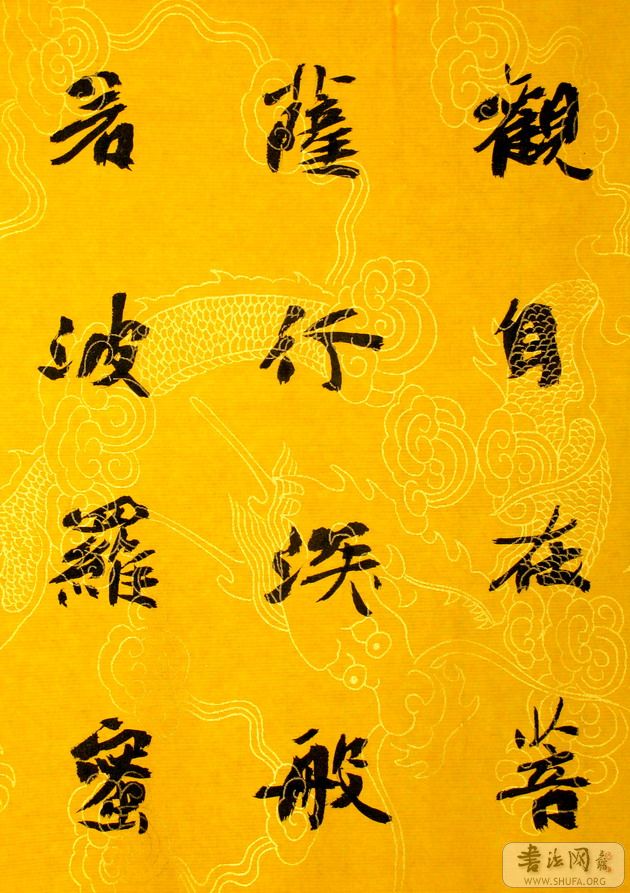 觀自在菩
薩行深般
若波羅蜜
書法网
WWW.SHUFA.ORG